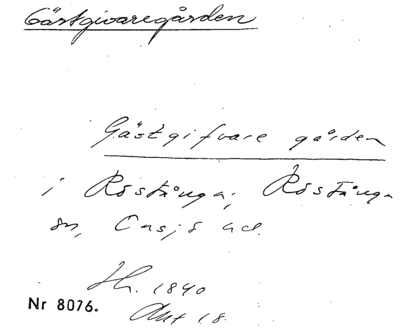 Gästgivaregården
Gästgifvare gården
i Röstånga, Röstånga
sn, Onsjö hd.
Hr. 1840
Akt 18.
Nr 8076.